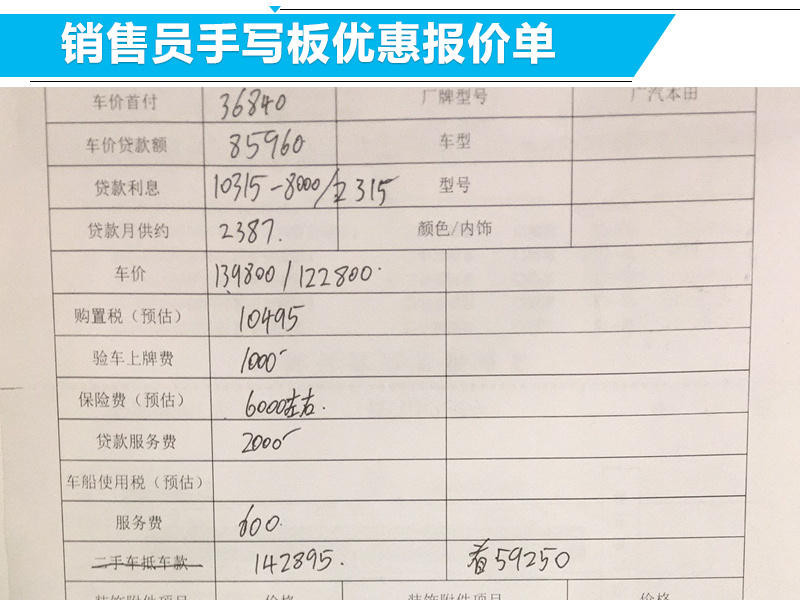 销售员手写板优惠报价单
车价首付 36840 厂牌型号 广汽本田
车价贷款额 85960 车型
贷款利息 10315-8000/2315 型号
贷款月供约 2387. 颜色/内饰
车价 139800/122800.
购置税（预估） 10495
验车上牌费 1000
保险费（预估） 6000左右.
贷款服务费 2000
车船使用税（预估）
服务费 600.
二手车抵车款 142895. 首59250
装饰附件项目 价格 装饰附件项目 价格